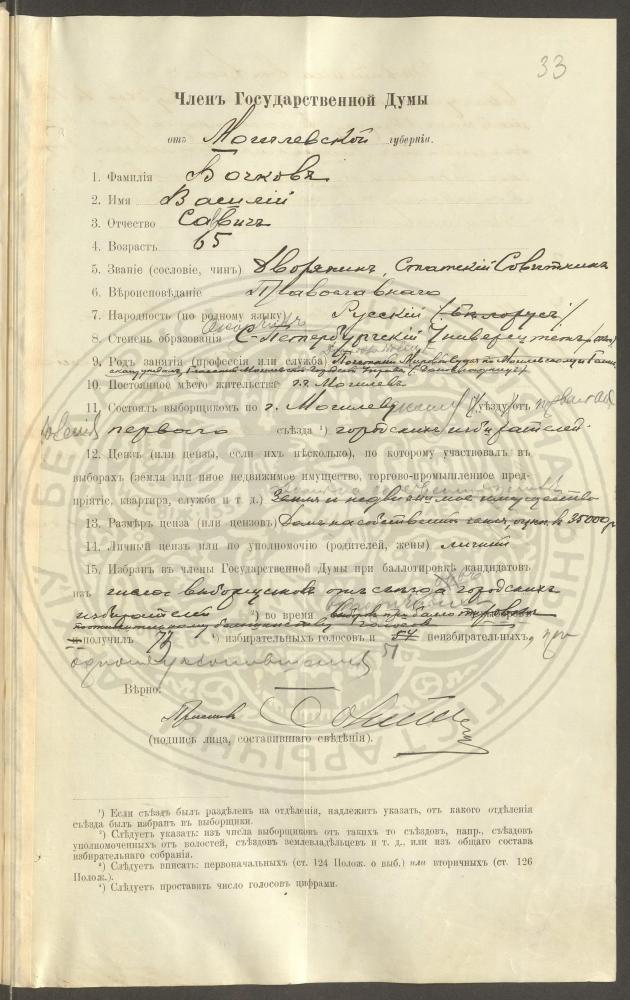 33
Членъ Государственной Думы
отъ Могилевской губернiи.
1. Фамилiя Бочковъ
2. Имя Василiй
3. Отчество Саввичъ
4. Возрастъ 65
5. Званiе (сословiе, чинъ) Дворянинъ, Статскiй Совѣтникъ
6. Вѣроисповѣданiе Православнаго
7. Народность (по родному языку) Русскiй /:бѣлорусъ/
8. Степень образованiя С-Петербургскiй Университетъ
9. Родъ занятiя (профессiя или служба)
10. Постоянное мѣсто жительства г. Могилевъ
11. Состоялъ выборщикомъ по г. Могилев уѣзду отъ
перваго съѣзда ¹) городскихъ избирателей
12. Цензъ (или цензы, если ихъ нѣсколько), по которому участвовалъ въ
выборахъ (земля или иное недвижимое имущество, торгово-промышленное пред-
прiятiе, квартира, служба и т. д.) Земля и недвижимое имущество
13. Размѣръ ценза (или цензовъ) 35000 р
14. Личный цензъ или по уполномочiю (родителей, жены) личный
15. Избранъ въ члены Государственной Думы при баллотировкѣ кандидатовъ
изъ числа выборщиковъ отъ съѣзда городскихъ
избирателей ²) во время
и получилъ 73 ⁴) избирательныхъ голосовъ и 54 неизбирательныхъ, при
51
Вѣрно:
Приставъ
(подпись лица, составившаго свѣдѣнiя).
¹) Если съѣздъ былъ раздѣленъ на отдѣленiя, надлежитъ указать, отъ какого отдѣленiя
съѣзда былъ избранъ въ выборщики.
²) Слѣдуетъ указать: изъ числа выборщиковъ отъ такихъ то съѣздовъ, напр., съѣздовъ
уполномоченныхъ отъ волостей, съѣздовъ землевладѣльцевъ и т. д., или изъ общаго состава
избирательнаго собранiя.
³) Слѣдуетъ вписать: первоначальныхъ (ст. 124 Полож. о выб.) или вторичныхъ (ст. 126
Полож.).
⁴) Слѣдуетъ проставить число голосовъ цифрами.